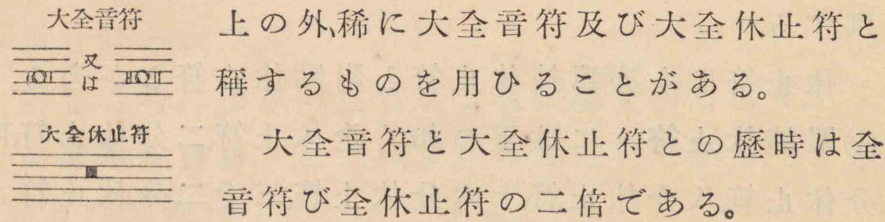 大全音符
又
は
大全休止符
上の外、稀に大全音符及び大全休止符と
稱するものを用ひることがある。
大全音符と大全休止符との歷時は全
音符び全休止符の二倍である。